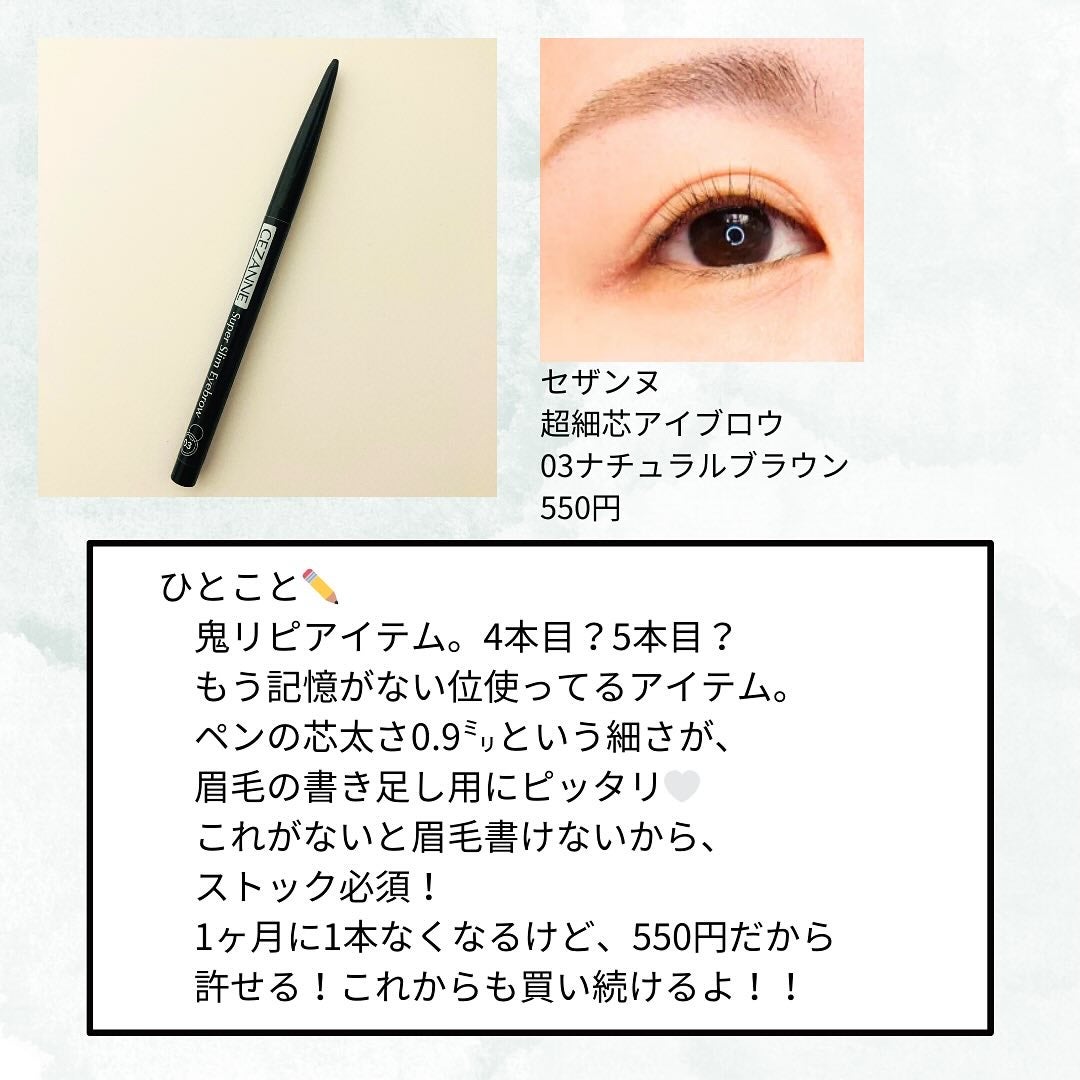 CEZANNE Super Slim Eyebrow
セザンヌ
超細芯アイブロウ
03ナチュラルブラウン
550円
ひとこと✏️
鬼リピアイテム。4本目？5本目？
もう記憶がない位使ってるアイテム。
ペンの芯太さ0.9㍉という細さが、
眉毛の書き足し用にピッタリ🤍
これがないと眉毛書けないから、
ストック必須！
1ヶ月に1本なくなるけど、550円だから
許せる！これからも買い続けるよ！！